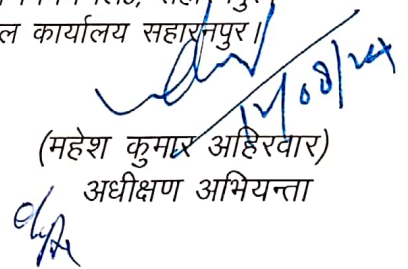 ल कार्यालय सहारनपुर।
12/08/24
(महेश कुमार अहिरवार)
अधीक्षण अभियन्ता